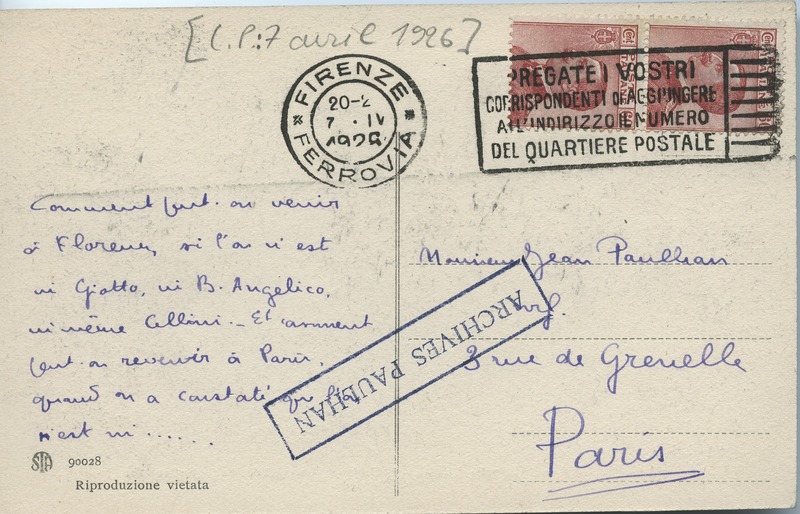 [C.P.:7 avril 1926]
FIRENZE
20-2
7 . IV
1926
FERROVIA
PREGATE I VOSTRI
CORRISPONDENTI DI AGGIUNGERE
ALL'INDIRIZZO IL NUMERO
DEL QUARTIERE POSTALE
Comment peut-on venir
à Florence, si l'on n'est
ni Giotto, ni B. Angelico,
ni même Cellini. - Et comment
peut-on revenir à Paris,
quand on a constaté qu'
n'est ni ......
Monsieur Jean Paulhan
nrf.
3 rue de Grenelle
Paris
ARCHIVES PAULHAN
STA 90028
Riproduzione vietata